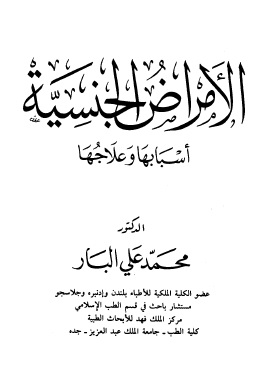 الأمراض الجنسية
أسبابها وعلاجها
الدكتور
محمد علي البار
عضو الكلية الملكية للأطباء بلندن وإدنبره وجلاسجو
مستشار باحث في قسم الطب الإسلامي
مركز الملك فهد للأبحاث الطبية
كلية الطب - جامعة الملك عبد العزيز - جده